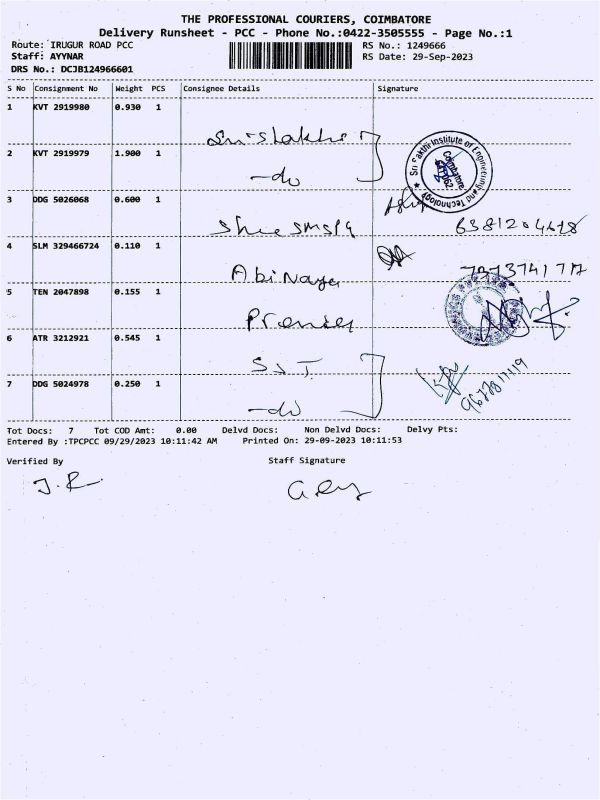 THE PROFESSIONAL COURIERS, COIMBATORE
Delivery Runsheet - PCC - Phone No.:0422-3505555 - Page No.:1
Route: IRUGUR ROAD PCC
RS No.: 1249666
Staff: AYYNAR
RS Date: 29-Sep-2023
DRS No.: DCJB124966601
S No Consignment No Weight PCS Consignee Details Signature
1 KVT 2919980 0.930 1
2 KVT 2919979 1.900 1
-do
Sri Sakthi Institute of Engineering and Technology
Coimbatore
3 DDG 5026068 0.600 1
Shree smspg
4 SLM 329466724 0.110 1
Abinaya
5 TEN 2047898 0.155 1
Premier
6 ATR 3212921 0.545 1
7 DDG 5024978 0.250 1
-do
Tot Docs: 7 Tot COD Amt: 0.00 Delvd Docs: Non Delvd Docs: Delvy Pts:
Entered By :TPCPCC 09/29/2023 10:11:42 AM Printed On: 29-09-2023 10:11:53
Verified By Staff Signature
J.R.